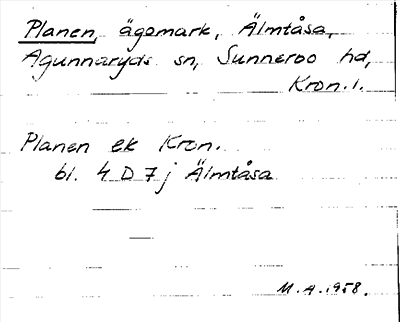 Planen, ägomark, Älmtåsa,
Agunnaryds sn, Sunnerbo hd,
Kron. l.
Planen ek Kron.
bl. 4 D 7 j Älmtåsa
M.A. 1958.